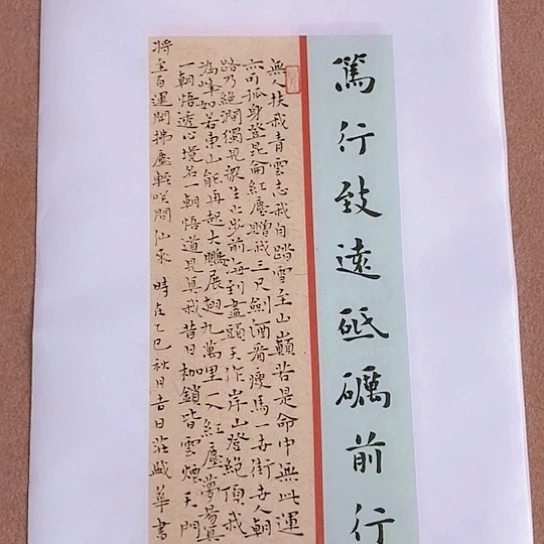 篤行致遠砥礪前行
無人扶我青雲志我自踏雪至山巔若是命中無此運
亦可孤身登昆侖紅塵贈我三尺劍酒看瘦馬一世街世人朝
路乃絕澗獨見眾生止步前海到盡頭天作岸山登絕頂我
為峰如若東山能再起大鵬展翅九萬里一入紅塵夢易真
一朝悟透心境名一朝悟道見真我昔日枷鎖皆雲煙天門
將至百運開拂塵輕嘆問仙來 時在乙巳秋月吉日莊 華書